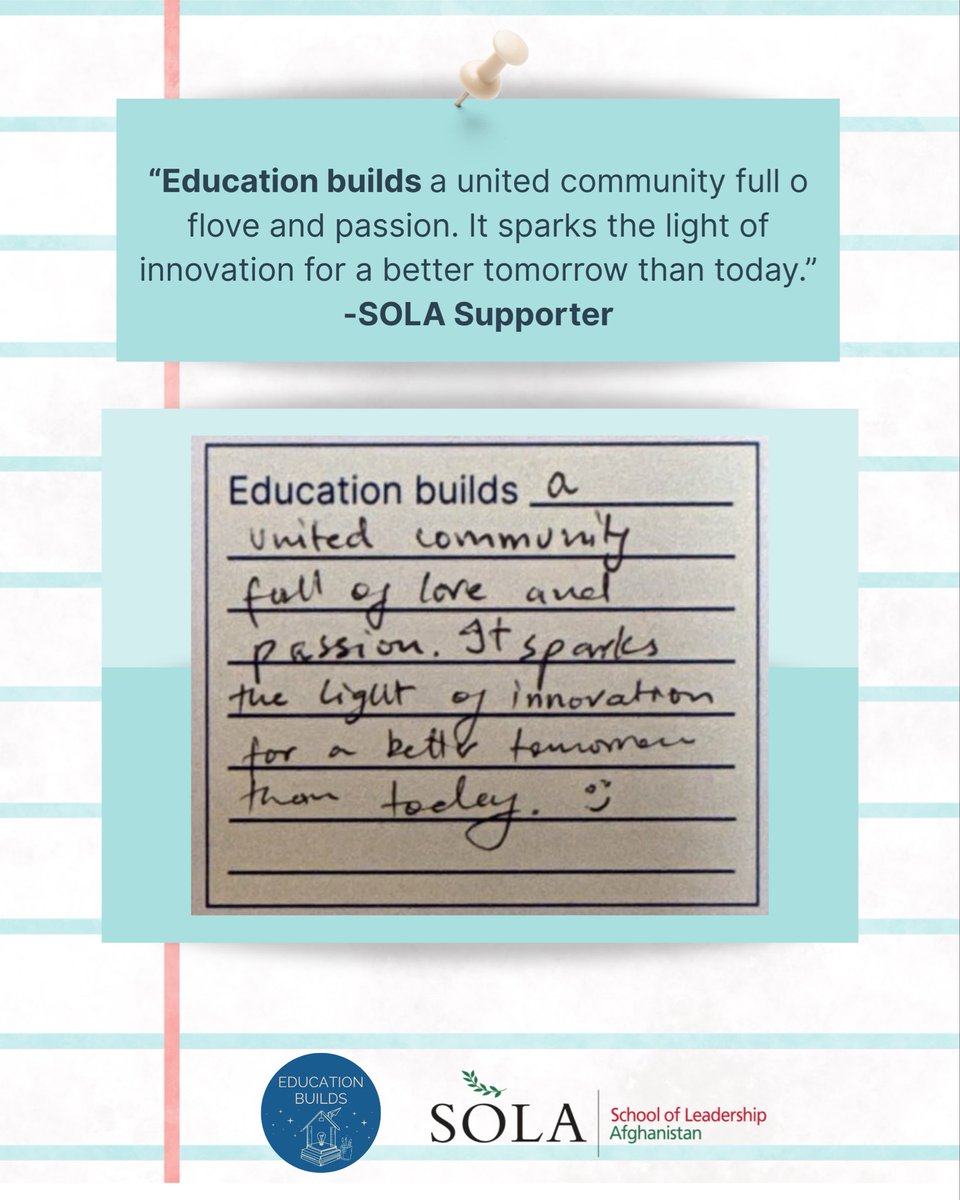 “Education builds a united community full o
flove and passion. It sparks the light of
innovation for a better tomorrow than today.”
-SOLA Supporter
Education builds a
united community
full of love and
passion. It sparks
the light of innovation
for a better tomorrow
than today. :)
EDUCATION
BUILDS
SOLA
School of Leadership
Afghanistan